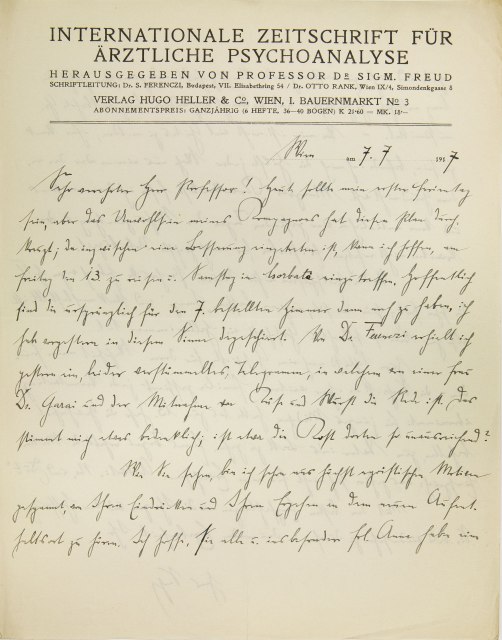 INTERNATIONALE ZEITSCHRIFT FÜR
ÄRZTLICHE PSYCHOANALYSE
HERAUSGEGEBEN VON PROFESSOR DR SIGM. FREUD
SCHRIFTLEITUNG: Dr. S. FERENCZI, Budapest, VII. Elisabethring 54 / Dr. OTTO RANK, Wien IX/4, Simondenkgasse 8
VERLAG HUGO HELLER & Co, WIEN, I. BAUERNMARKT No 3
ABONNEMENTSPREIS: GANZJÄHRIG (6 HEFTE, 36—40 BOGEN) K 21·60 — MK. 18·—
Wien am 7. 7 1917
Sehr verehrter Herr Professor! Heute sollte mein erster Ferientag
sein, aber das Unwohlsein meines Compagnons hat diesen Plan durch-
kreuzt; da inzwischen eine Besserung eingetreten ist, kann ich hoffen, am
Freitag den 13 zu reisen u. Samstag in Csorbató einzutreffen. Hoffentlich
sind die ursprünglich für den 7. bestellten Zimmer dann noch zu haben, ich
hab vorgestern in diesem Sinne depeschiert. Von Dr Ferenczi erhielt ich
gestern ein, leider verstümmeltes, Telegramm, in welchem von einer Frau
Dr. Garai und der Mitnahme von Käse und Wurst die Rede ist. Das
stimmt mich etwas bedenklich; ist etwa die Kost dorten so unzureichend?
Wie Sie sehen, bin ich schon aus höchst egoistischen Motiven
gespannt, von Ihren Eindrücken und Ihrem Ergehen in dem neuen Aufent-
haltsort zu hören. Ich hoffe, Sie alle u. insbesondere Frl. Anna haben